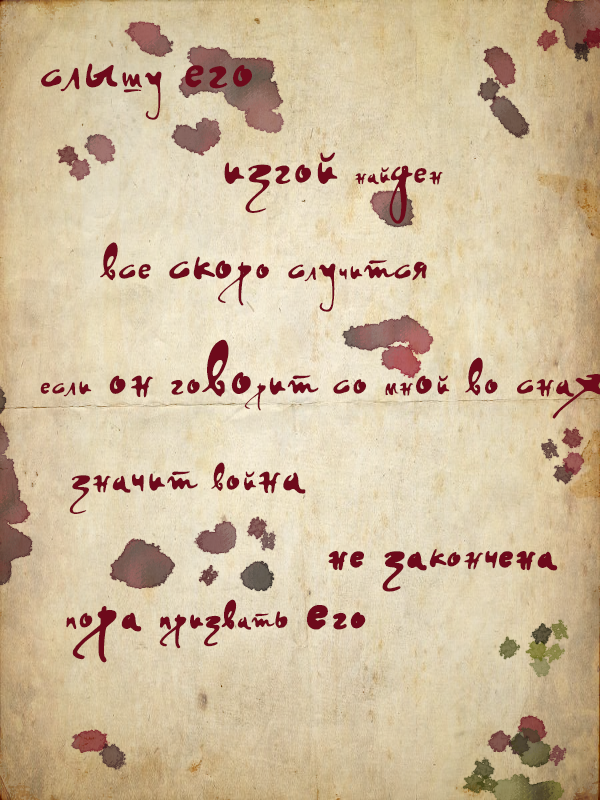 слышу его
изгой найден
все скоро случится
если он говорит со мной во снах
значит война
не закончена
пора призвать его